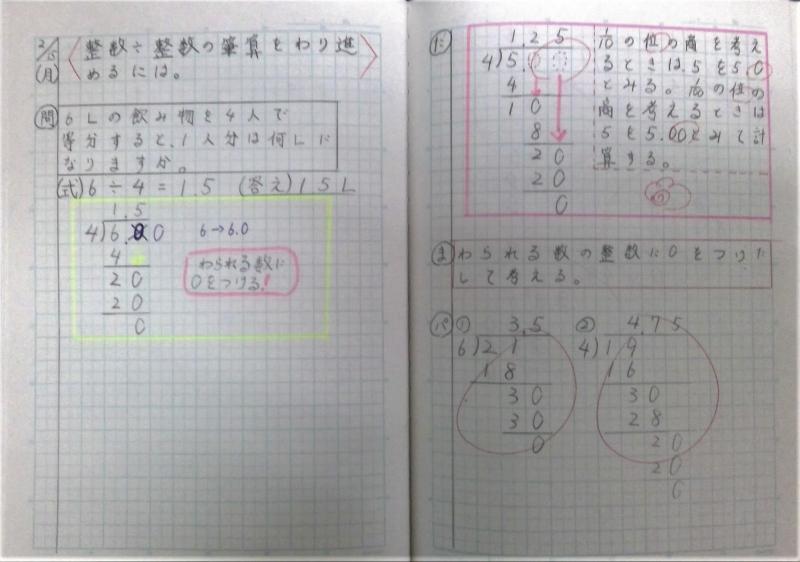 2/5
(月)
整数÷整数の筆算をわり進
めるには。
問
6Lの飲み物を4人で
等分すると、1人分は何Lに
なりますか。
(式)6÷4=1.5 (答え)1.5L
1.5
4)6.0 0
6→6.0
4
2 0
2 0
0
わられる数に
0をつける!
1.2 5
4)5.
4
1 0
8
2 0
2 0
0
1/10の位の商を考え
るときは、5を5.0
とみる。1/100の位の
商を考えるときは
5を5.00とみて計
算する。
ま
わられる数の整数に0をつけた
して考える。
パ
① 3.5
6)2 1
1 8
3 0
3 0
0
② 4.7 5
4)1 9
1 6
3 0
2 8
2 0
2 0
0